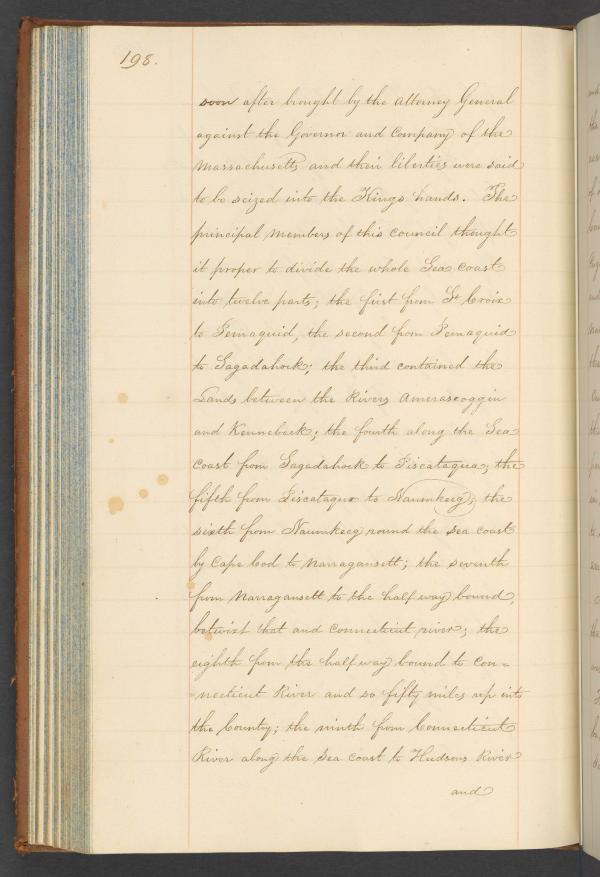 198.
soon after brought by the Attorney General
against the Governor and Company of the
Massachusetts and their liberties were said
to be seized into the Kings hands. The
principal members of this council thought
it proper to divide the whole Sea coast
into twelve parts; the first from St Croix
to Pemaquid, the second from Pemaquid
to Sagadahock; the third contained the
Lands between the Rivers Amerascoggin
and Kennebeck; the fourth along the Sea
coast from Sagadahock to Piscataqua; the
fifth from Piscataqua to Naumkeeg; the
sixth from Naumkeeg round the sea coast
by Cape Cod to Narragansett; the seventh
from Narragansett to the half way bound,
betwixt that and Connecticut river; the
eighth from the half way bound to Con=
=necticut River and so fifty miles up into
the Country; the ninth from Connecticut
River along the Sea Coast to Hudsons River
and